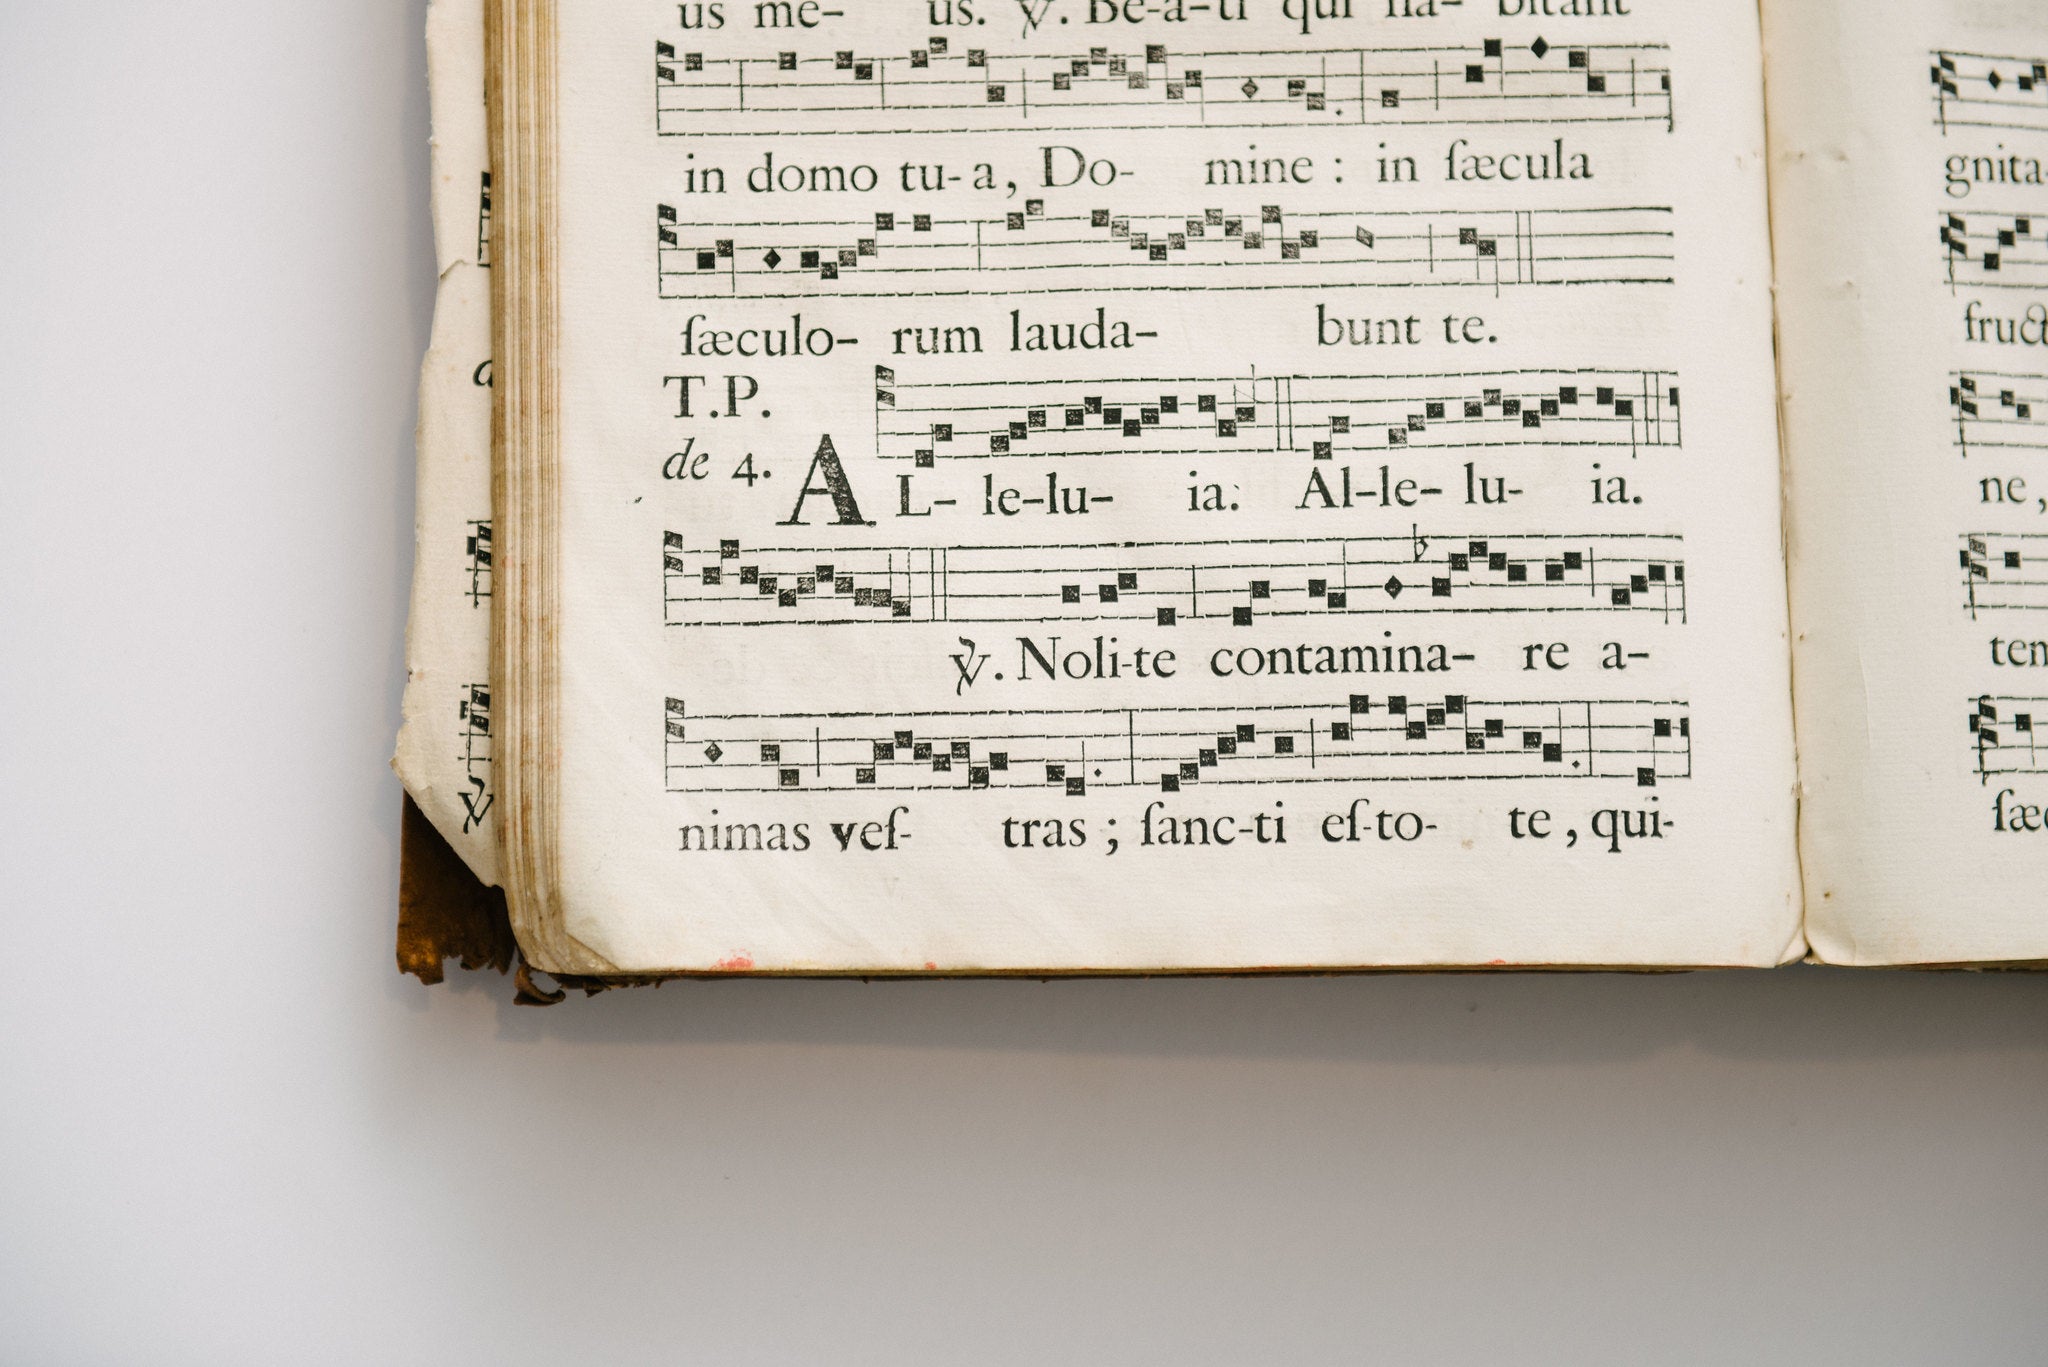 us me- us. ℣. Be-a-ti qui ha- bitant
in domo tu-a, Do- mine : in ſæcula
ſæculo- rum lauda- bunt te.
T.P.
de 4. AL- le-lu- ia. Al-le- lu- ia.
℣. Noli-te contamina- re a-
nimas veſ- tras ; ſanc-ti eſ-to- te, qui-
gnita-
fruct
ne,
tem
ſæc
℣